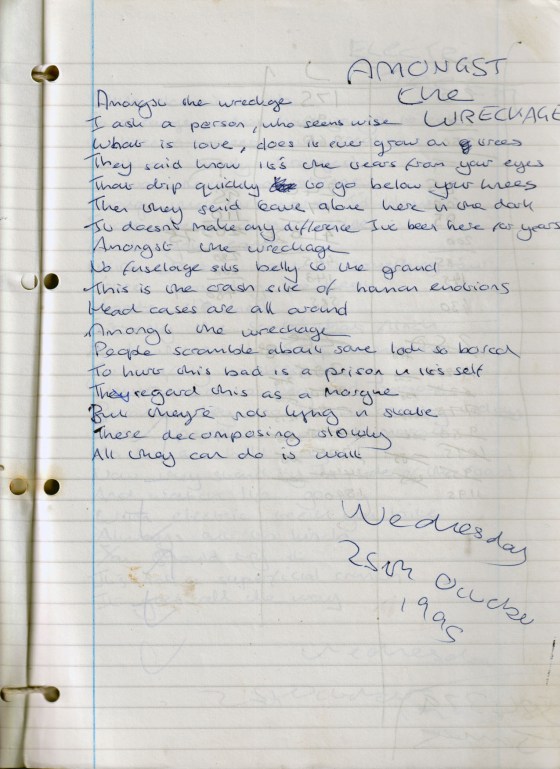 AMONGST
the
WRECKAGE
Amongst the wreckage
I ask a person, who seems wise
What is love, does it ever grow on trees
They said know it's the tears from your eyes
That drip quickly to go below your knees
Then they said leave alone here in the dark
It doesn't make any difference I've been here for years
Amongst the wreckage
No fuselage sits belly to the ground
This is the crash site of human emotions
Head cases are all around
Amongst the wreckage
People scramble about some look so bored
To hurt this bad is a prison in it's self
They regard this as a morgue
But they're not lying n state
There decomposing slowly
All they can do is wait
Wednesday
25th October
1995